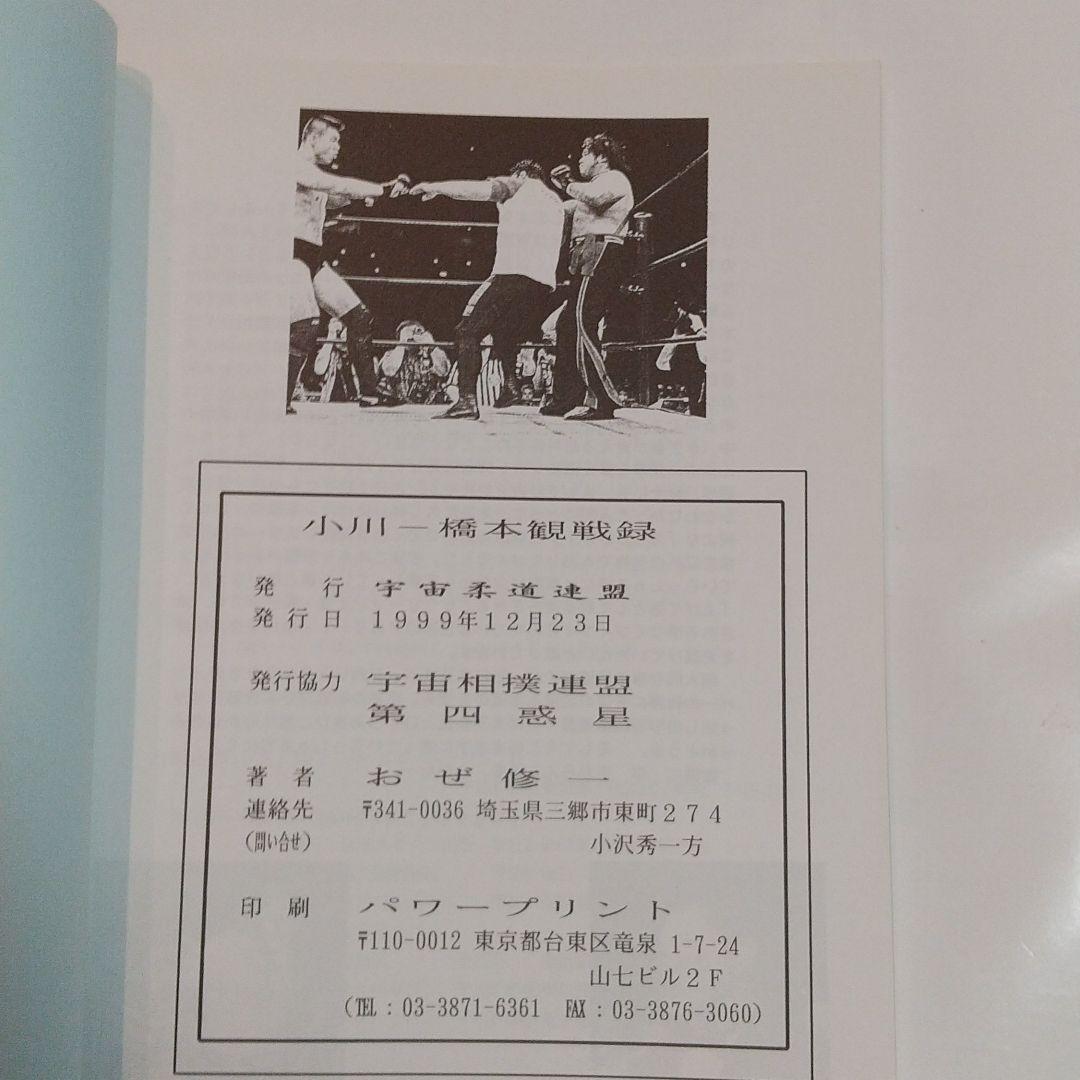 小川－橋本観戦録
発　行　宇宙柔道連盟
発行日　１９９９年１２月２３日
発行協力　宇宙相撲連盟
第四惑星
著者　おぜ修一
連絡先　〒341-0036 埼玉県三郷市東町２７４
（問い合せ）　小沢秀一方
印刷　パワープリント
〒110-0012 東京都台東区竜泉 1-7-24
山七ビル２Ｆ
（℡：03-3871-6361　FAX：03-3876-3060）